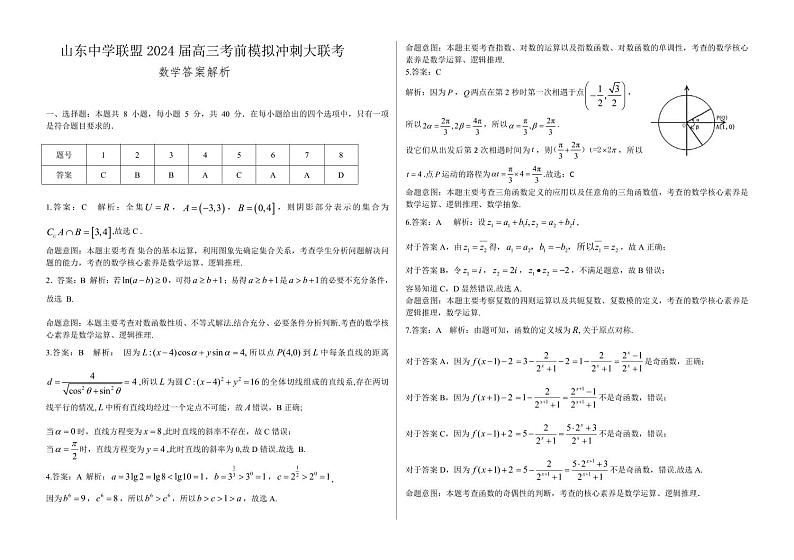 山东中学联盟 2024 届高三考前模拟冲刺大联考
数学答案解析
一、选择题：本题共 8 小题，每小题 5 分，共 40 分．在每小题给出的四个选项中，只有一项
是符合题目要求的．
题号 1 2 3 4 5 6 7 8
答案 C B B A C A A D
1.答案：C 解析：全集U = R ，A = (−3,3)，B = (0,4]，则阴影部分表示的集合为
C_U A ∩ B = [3,4],故选 C .
命题意图：本题主要考查 集合的基本运算，利用图象先确定集合关系，考查学生分析问题解决问
题的能力，考查的数学核心素养是数学运算、逻辑推理.
2．答案：B 解析：若ln(a − b) ≥ 0，可得a ≥ b +1；易得a ≥ b +1是a > b +1的必要不充分条件，
故选 B.
命题意图：本题主要考查对数函数性质、不等式解法.结合充分、必要条件分析判断.考查的数学核
心素养是数学运算、逻辑推理.
3.答案：B 解析： 因为L : (x − 4)cosα + y sinα = 4, 所以点P(4,0) 到L 中每条直线的距离
d = 4/√(cos²θ + sin²θ) = 4 ,所以L 为圆C : (x − 4)² + y² = 16 的全体切线组成的直线系,存在两切
线平行的情况, L 中所有直线均经过一个定点不可能，故A 错误，B 正确;
当α = 0时，直线方程变为x = 8 ,此时直线的斜率不存在，故 C 错误；
当α = π/2 时，直线方程变为y = 4 ,此时直线的斜率为 0,故 D 错误.故选 B.
4.答案：A 解析：a = 3lg2 = lg8 < lg10 = 1，b = 3^(1/3) > 3^0 = 1，c = 2^(1/2) > 2^0 = 1，
因为b⁶ = 9，c⁶ = 8，所以b⁶ > c⁶，所以b > c > 1 > a，故选 A.
命题意图：本题主要考查指数、对数的运算以及指数函数、对数函数的单调性，考查的数学核心
素养是数学运算、逻辑推理.
5.答案：C
解析：因为P，Q两点在第 2 秒时第一次相遇于点(−1/2, √3/2)，
所以2α = 2π/3, 2β = 4π/3，所以α = π/3, β = 2π/3.
设它们从出发后第 2 次相遇时间为t，则（π/3 + 2π/3）t=2×2π，所以
t = 4 .点P运动的路程为αt = π/3 × 4 = 4π/3.故选：C
P(Q)
A(1,0)
命题意图：本题主要考查三角函数定义的应用以及任意角的三角函数值，考查的数学核心素养是
数学运算、逻辑推理、数学抽象.
6.答案：A 解析：设z₁ = a₁ + b₁i, z₂ = a₂ + b₂i，
对于答案 A，由z₁ = z̄₂ 得，a₁ = a₂，b₁ = −b₂，所以z̄₁ = z₂，故 A 正确；
对于答案 B，令z₁ = i，z₂ = 2i，z₁ • z₂ = −2，不满足题意，故 B 错误；
容易知道 C，D 显然错误.故选 A.
命题意图：本题主要考察复数的四则运算以及共轭复数、复数模的定义，考查的数学核心素养是
逻辑推理，数学运算.
7.答案：A 解析：由题可知，函数的定义域为R, 关于原点对称.
对于答案 A，因为f(x −1) − 2 = 3 − 2/(2^x +1) − 2 = 1 − 2/(2^x +1) = (2^x −1)/(2^x +1) 是奇函数，正确；
对于答案 B，因为f(x +1) − 2 = 1 − 2/(2^(x+1) +1) = (2^(x+1) −1)/(2^(x+1) +1) 不是奇函数，错误；
对于答案 C，因为f(x −1) + 2 = 5 − 2/(2^x +1) = (5·2^x + 3)/(2^x +1) 不是奇函数，错误；
对于答案 D，因为f(x +1) + 2 = 5 − 2/(2^(x+1) +1) = (5·2^(x+1) + 3)/(2^(x+1) +1) 不是奇函数，错误.故选 A.
命题意图：本题考查函数的奇偶性的判断，考查的核心素养是数学运算、逻辑推理．